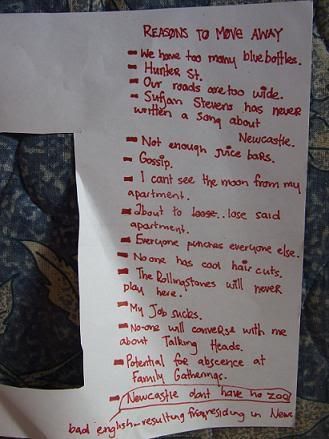 REASONS TO MOVE AWAY
- We have too many bluebottles.
- Hunter St.
- Our roads are too wide.
- Sufjan Stevens has never
written a song about
Newcastle.
- Not enough juice bars.
- Gossip.
- I cant see the moon from my
apartment.
- About to loose..lose said
apartment.
- Everyone punches everyone else.
- No one has cool hair cuts.
- The Rollingstones will never
play here.
- My Job sucks.
- No-one will converse with me
about Talking Heads.
- Potential for abscence at
Family Gatherings.
- Newcastle dont have no zoo!
bad english-resulting from residing in Newc